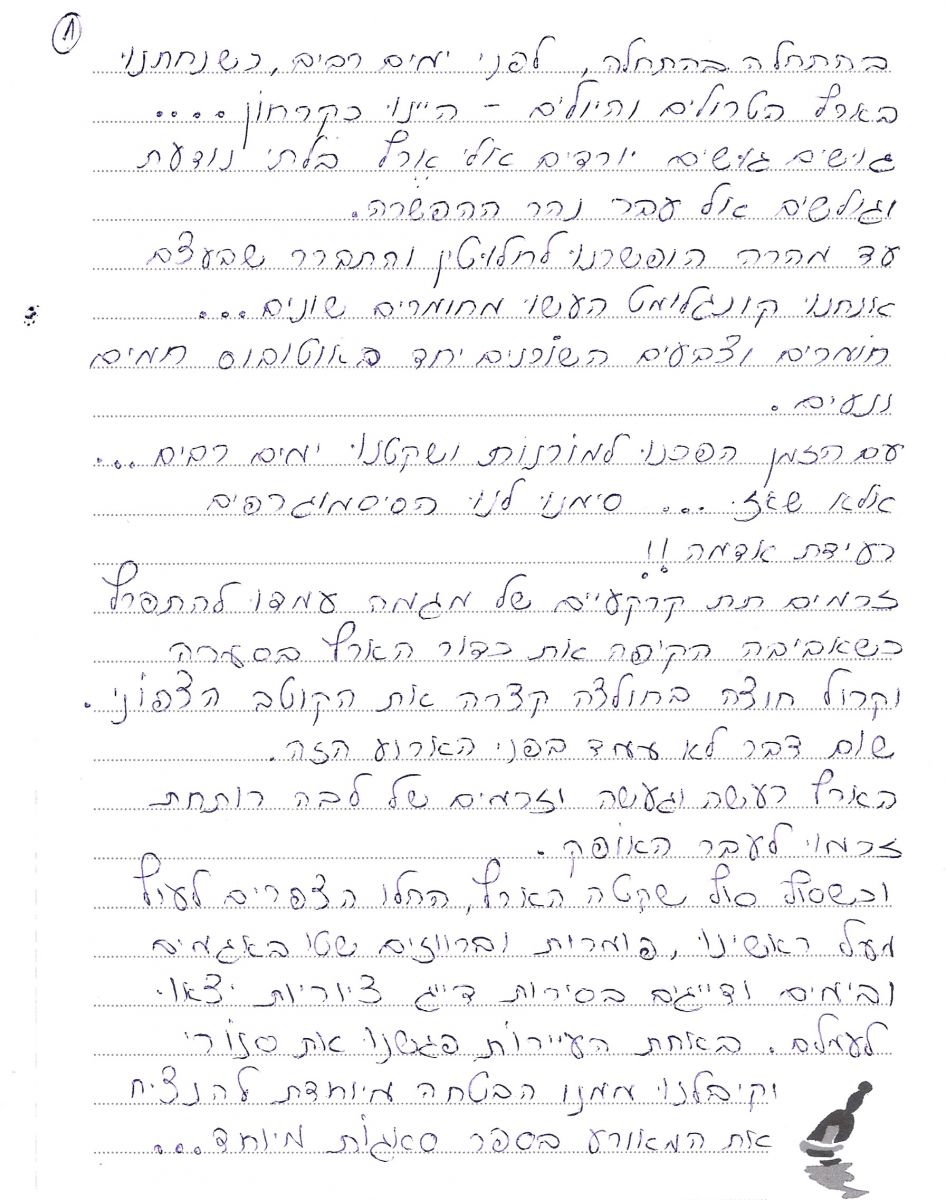 1
בהתחלה בהתחלה, לפני ימים רבים, כשנחתנו
בארץ הטרולים והיולים - היינו כקרחון....
גושים גושים יורדים אלי ארץ בלתי נודעת
וגולשים אל עברי נהר ההפשרה.
עד מהרה הופשרנו לחלוטין והתברר שבעצם
אנחנו קונגלומט העשוי מחומרים שונים...
חומרים וצבעים השוכנים יחד באוטובוס חמים
ונעים.
עם הזמן הפכנו למורנות ושקטנו ימים רבים...
אלא שאז... סימנו לנו הסיסמוגרפים
רעידת אדמה!!
זרמים תת קרקעיים של מגמה עמדו להתפרץ
כשאביבה הקיפה את כדור הארץ בסערה
וקרול חוצה בחולצה קצרה את הקוטב הצפוני.
שום דבר לא עמד בפני הארוע הזה.
הארץ רעשה וגעשה וזרמים של לבה רותחת
זרמו לעבר האופק.
וכשסוף סוף שקטה הארץ, החלו הצפרים לעוף
מעל ראשינו, פומרות וברווזים שטו באגמים
ובימים ודייגים בסירות דייג ציוריות יצאו
לעמלם. באחת העיירות פגשנו את סנורי
וקיבלנו ממנו הבטחה מיוחדת להנציח
את המאורע בספר סאגות מיוחד...